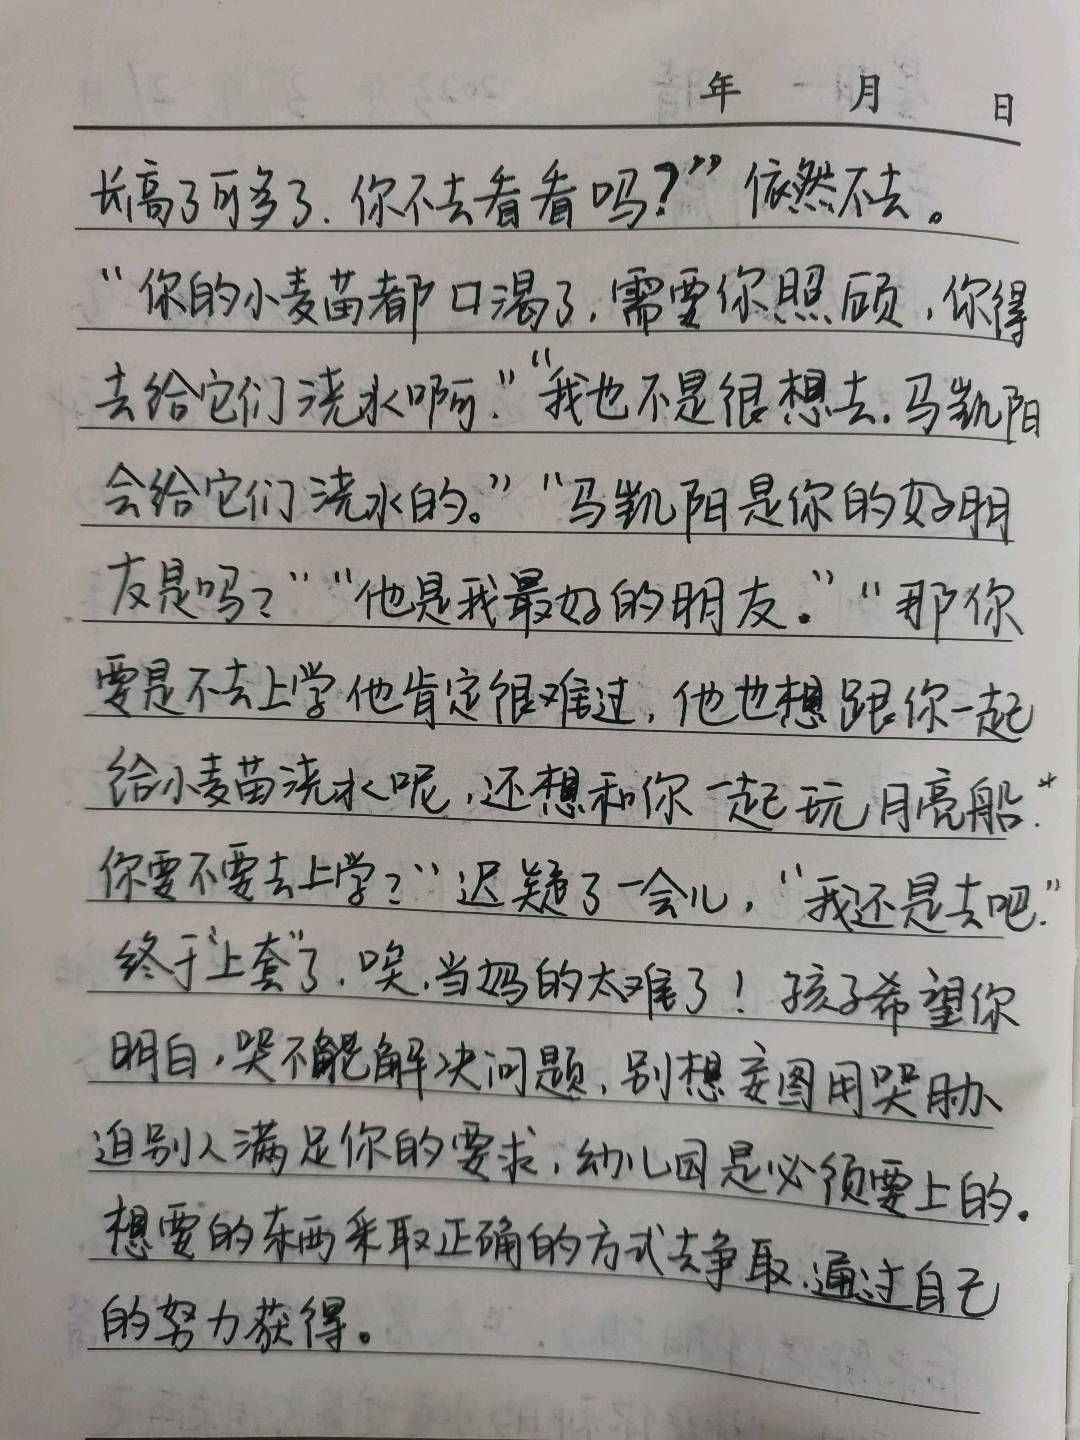 年 月 日
长高了可多了.你不去看看吗?”依然不去。
“你的小麦苗都口渴了,需要你照顾,你得
去给它们浇水啊.”“我也不是很想去.马凯阳
会给它们浇水的。”“马凯阳是你的好朋
友是吗?”“他是我最好的朋友.”“那你
要是不去上学他肯定很难过,他也想跟你一起
给小麦苗浇水呢,还想和你一起玩月亮船.*
你要不要去上学?”迟疑了一会儿,“我还是去吧.”
终于“上套”了.唉,当妈的太难了!孩子希望你
明白,哭不能解决问题,别想妄图用哭胁
迫别人满足你的要求,幼儿园是必须要上的.
想要的东西采取正确的方式去争取.通过自己
的努力获得。